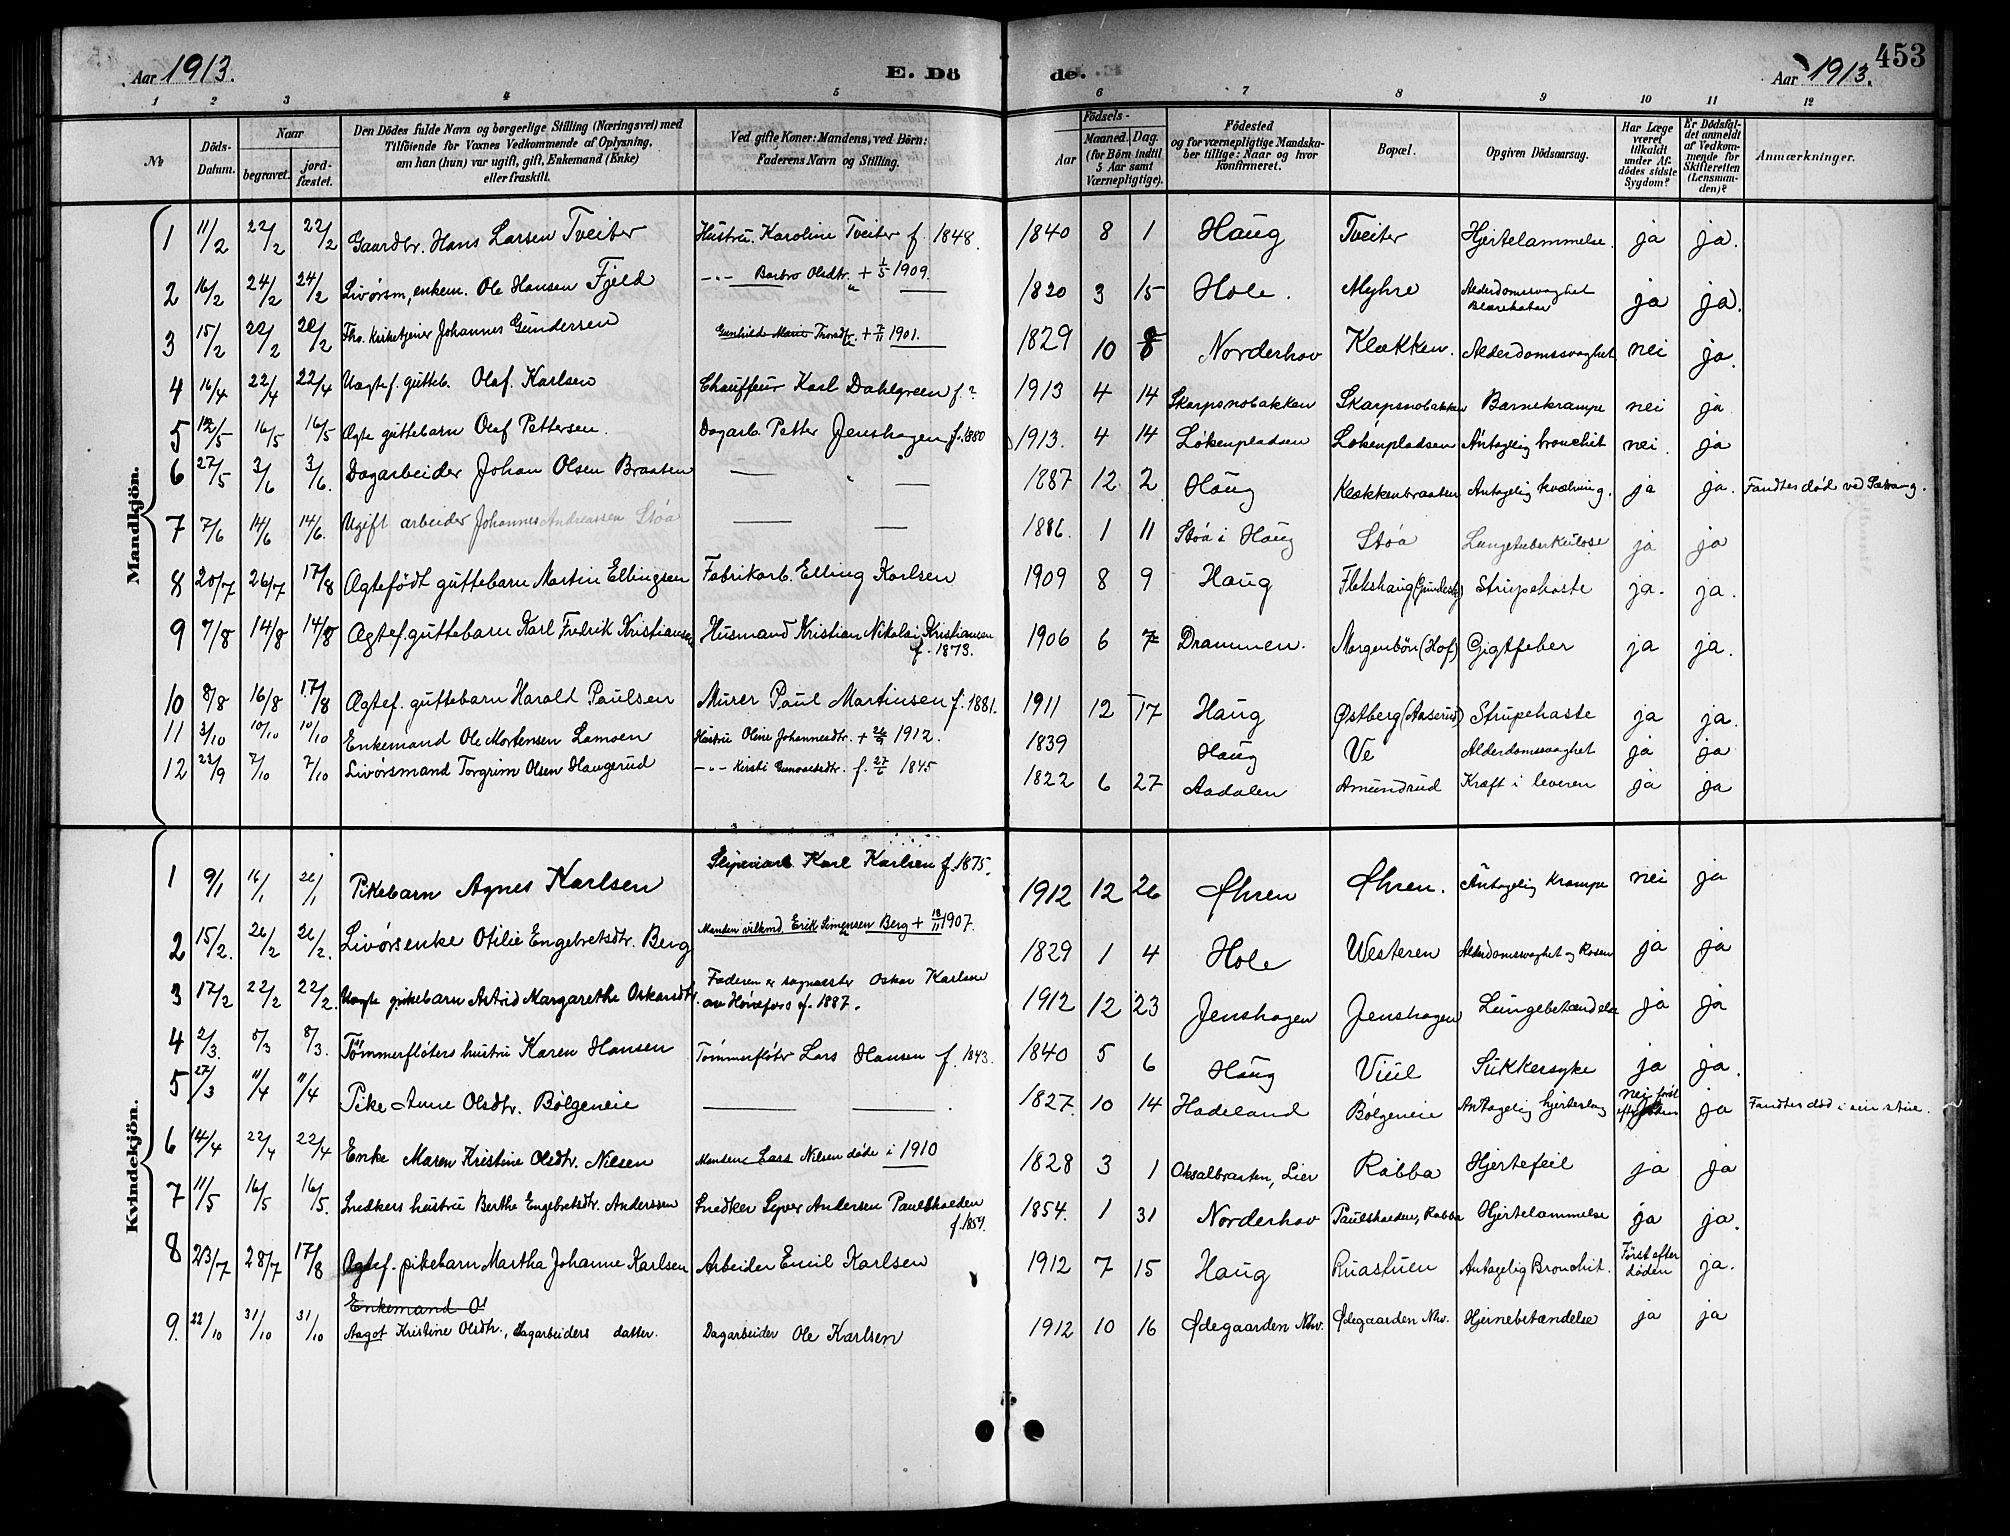 Aar 1913.
E. Dö
de.
Aar 1913.
453
1 2 3 4 5 6 7 8 9 10 11 12
№
Döds-Datum.
Naar
begravet.
jord-fæstet.
Den Dödes fulde Navn og borgerlige Stilling (Næringsvei) med
Tilföiende for Voxnes Vedkommende af Oplysning,
om han (hun) var ugift, gift, Enkemand (Enke)
eller fraskilt.
Ved gifte Koner: Mandens, ved Börn:
Faderens Navn og Stilling.
Födsels-
Aar
Maaned. Dag.
(for Börn indtil
5 Aar samt
Værnepligtige).
Födested
og for værnepligtige Mandska-
ber tillige: Naar og hvor
konfirmeret.
Bopæl.
Opgiven Dödsaarsag.
Har Læge
været
tilkaldt
under Af-
dödes sidste
Sygdom?
Er Dödsfal-
det anmeldt
af Vedkom-
mende for
Skifteretten
(Lensman-
den)?
Anmærkninger.
Mandkjön.
1 11/2 22/2 22/2 Gaardbr. Hans Larsen Tveiter Hustru. Karoline Tveiter f. 1848. 1840 8 1 Haug Tveiter Hjertelammelse. ja ja.
2 16/2 24/2 24/2 Livørsm, enkem. Ole Hansen Fjeld -"- Barbro Olsdtr. + 1/5 1909. 1820 3 15 Hole. Myhre Alderdomssvaghet Blærekatar ja ja.
3 15/2 22/2 22/2 Fho. Kirketjener Johannes Gundersen Gunhild Marie Thorsdtr. + 7/11 1901. 1829 10 8 Norderhov Klækken. Alderdomssvaghet nei ja.
4 16/4 22/4 22/4 Uægtef. gutteb. Olaf Karlsen Chauffeur Karl Dahlgreen f.? 1913 4 14 Skarpsnobakken Skarpsnobakken Barnekrampe nei ja
5 12/5 16/5 16/5 Ægte guttebarn Olaf Pettersen. Dagarb. Petter Jenshagen f. 1880 1913. 4 14 Løkenpladsen Løkenpladsen Antagelig bronchit nei. ja
6 27/5 3/6 3/6. Dagarbeider Johan Olsen Braaten — — 1887 12 2 Haug Klækkenbraaten Antagelig kvælning. ja ja. Fandtes død ved
7 7/6 14/6 14/6. Ugift arbeider Johannes Andreassen Stóa — — 1886. 1 11 Stóa i Haug Stóa Lungetuberkulose ja ja
8 20/7 26/7 17/8 Ægtefødt guttebarn Martin Ellingsen Fabrikarb. Elling Karlsen 1909 8 9 Haug Strupehoste ja. ja.
9 7/8 14/8 14/8 Ægtef. guttebarn Karl Fredrik Kristiansen Husmand Kristian Nikolai Kristiansen f. 1873. 1906 6 7 Drammen. Morgenbön (Hof) Gigtfeber ja ja.
10 8/8 16/8 17/8 Ægtef. guttebarn Harald Paulsen Murer Paul Martinsen f. 1881. 1911 12 17 Haug Østberg (Aaserud) Strupehoste ja ja.
11 3/10 10/10 10/10 Enkemand Ole Mortensen Lamoen Hustru Oline Johannesdtr. + 26/9 1912. 1839 Haug Ve Alderdomssvaghet ja ja
12 22/9 7/10 7/10 Livørsmand Torgrim Olsen Haugerud -"- Kirsti Gunvaldsdtr. f. 27/6 1845 1822 6 27 Aadalen Amundrud Kræft i leveren ja ja
Kvindekjön.
1 9/1 16/1 26/1 Pikebarn Agnes Karlsen Sliperiarb. Karl Karlsen f. 1875. 1912 12 26 Øhren Øhren. Antagelig Krampe nei ja
2 15/2. 26/2 26/2. Livørsenke Otilie Engebretsdtr. Berg Manden vilkmd. Erik Simensen Berg + 18/11 1907. 1829 1 4 Hole Westeren Alderdomssvaghet og Rosen ja ja
3 17/2 22/2 22/2. Uægte pikebarn Astrid Margarethe Oskarsdtr. Faderen er sagmester Oskar Karlsen av Hönefos f. 1887. 1912 12 23 Jenshagen Jenshagen Lungebetændelse ja ja
4 2/3. 8/3 8/3. Tömmerfløters hustru Karen Hansen Tömmerfløter Lars Hansen f. 1843. 1840 5 6 Haug Viul Sukkersyke ja ja.
5 27/3 11/4 11/4 Pike Anne Olsdtr. Bølgeneie — — 1827. 10 14 Hadeland Bølgeneie Antagelig hjerteslag nei först efter döden ja Fandtes død i sin stue.
6 14/4 22/4 22/4 Enke Maren Kristine Olsdtr. Nilsen Manden Lars Nilsen døde i 1910 1828 3 1 Oksalbraaten, Lier Rabba Hjertefeil ja ja
7 11/5 16/5 16/5. Snedkers hustru Berthe Engebretsdtr. Anderssen Snedker Syver Andersen Paulshaeden f. 1854. 1854. 1 31 Norderhov Paulshaeden, Rabba Hjertelammelse ja ja.
8 23/7 28/7 17/8 Ægtef. pikebarn Martha Johanne Karlsen Arbeider Emil Karlsen 1912 7 15 Haug Ruastuen Antagelig Bronchit. Först efter döden ja.
Enkemand O
9. 22/10 31/10 31/10 Aagot Kristine Olsdtr., dagarbeiders datter. Dagarbeider Ole Karlsen 1912 10 16 Ødegaarden Nhv. Ødegaarden Nhv. Hjernebetændelse ja ja